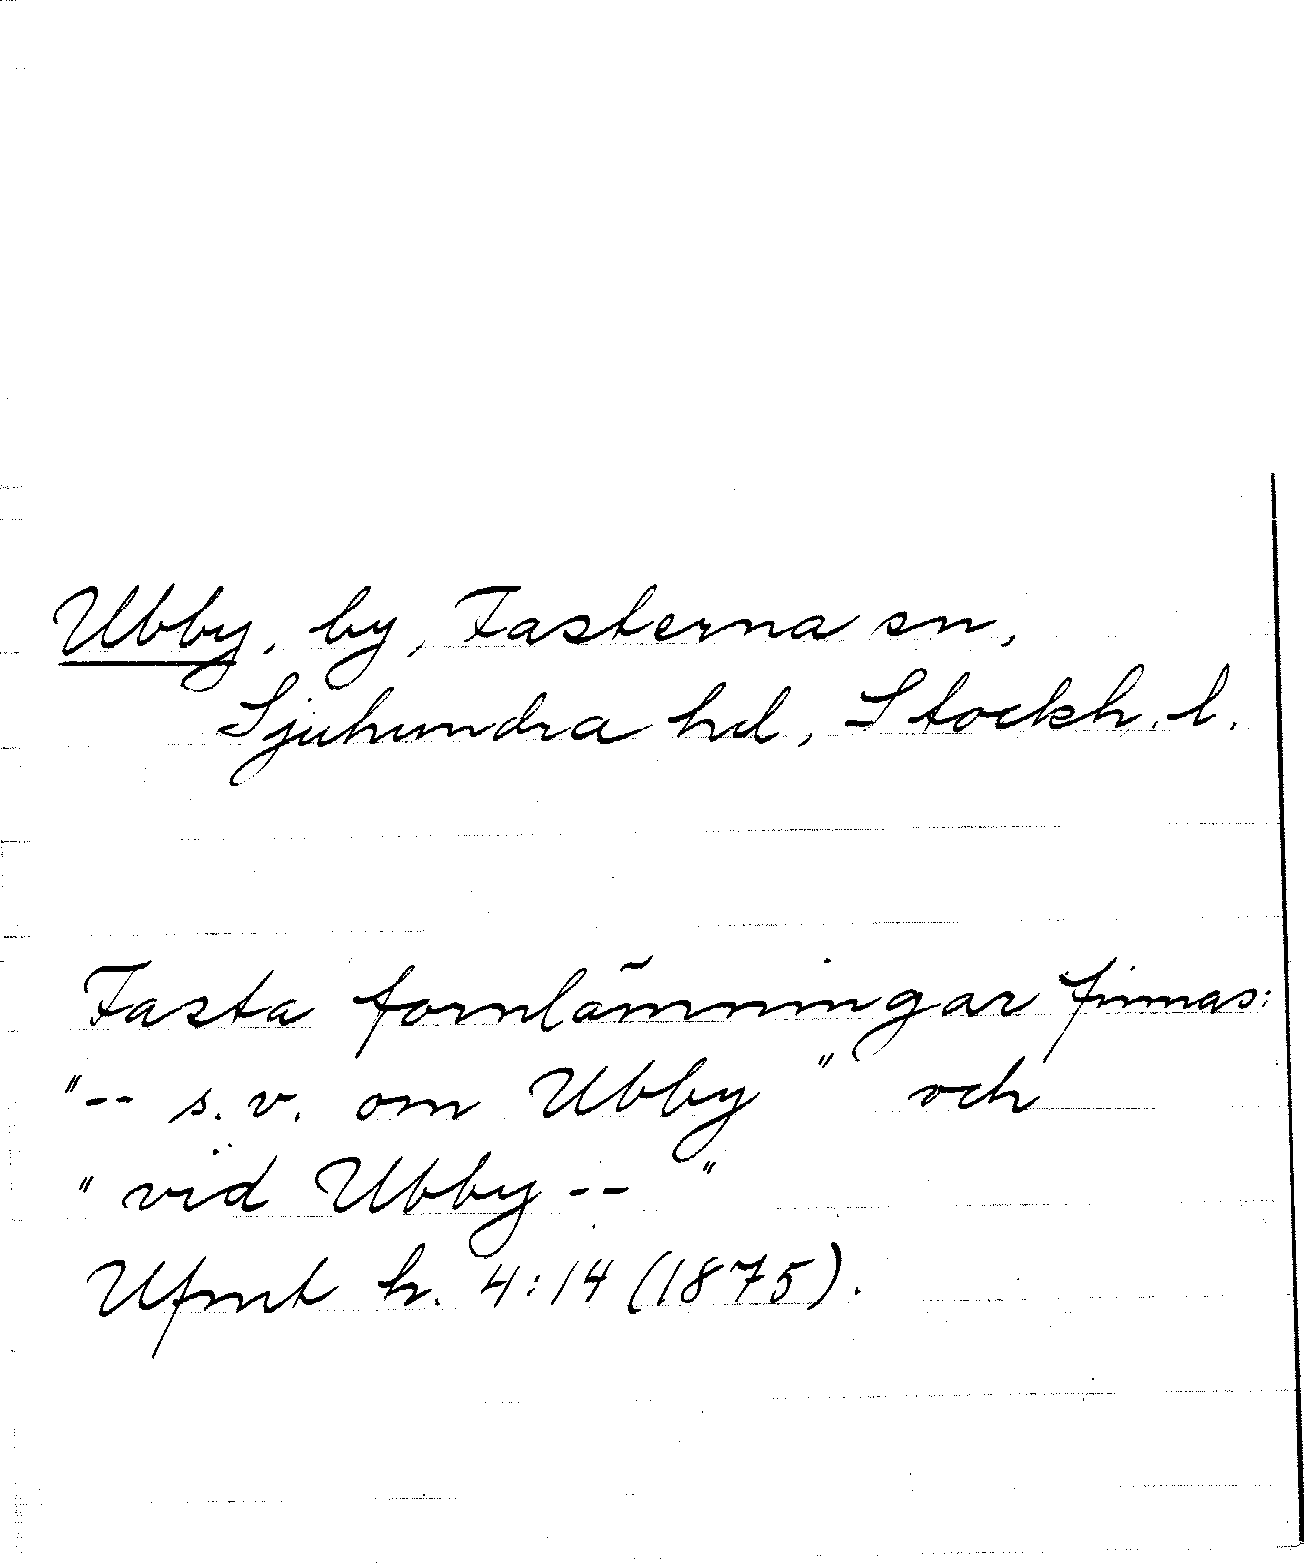 Ubby, by, Fasterna sn,
Sjuhundra hd, Stockh. l.
Fasta fornlämningar finnas:
"-- s.v. om Ubby" och
"vid Ubby--"
Ufmt h. 4:14 (1875).